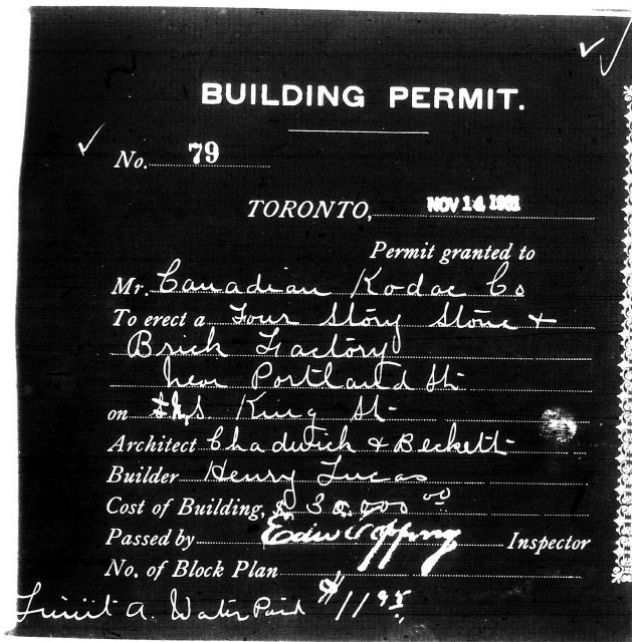 BUILDING PERMIT.
No. 79
TORONTO, NOV 14 1901
Permit granted to
Mr. Canadian Kodac Co
To erect a Four Story Stone +
Brick Factory
near Portland St
on King St
Architect Chadwick & Beckett
Builder Henry Lucas
Cost of Building, $
Passed by Inspector
No. of Block Plan
Limit A. Water Paid $11 95